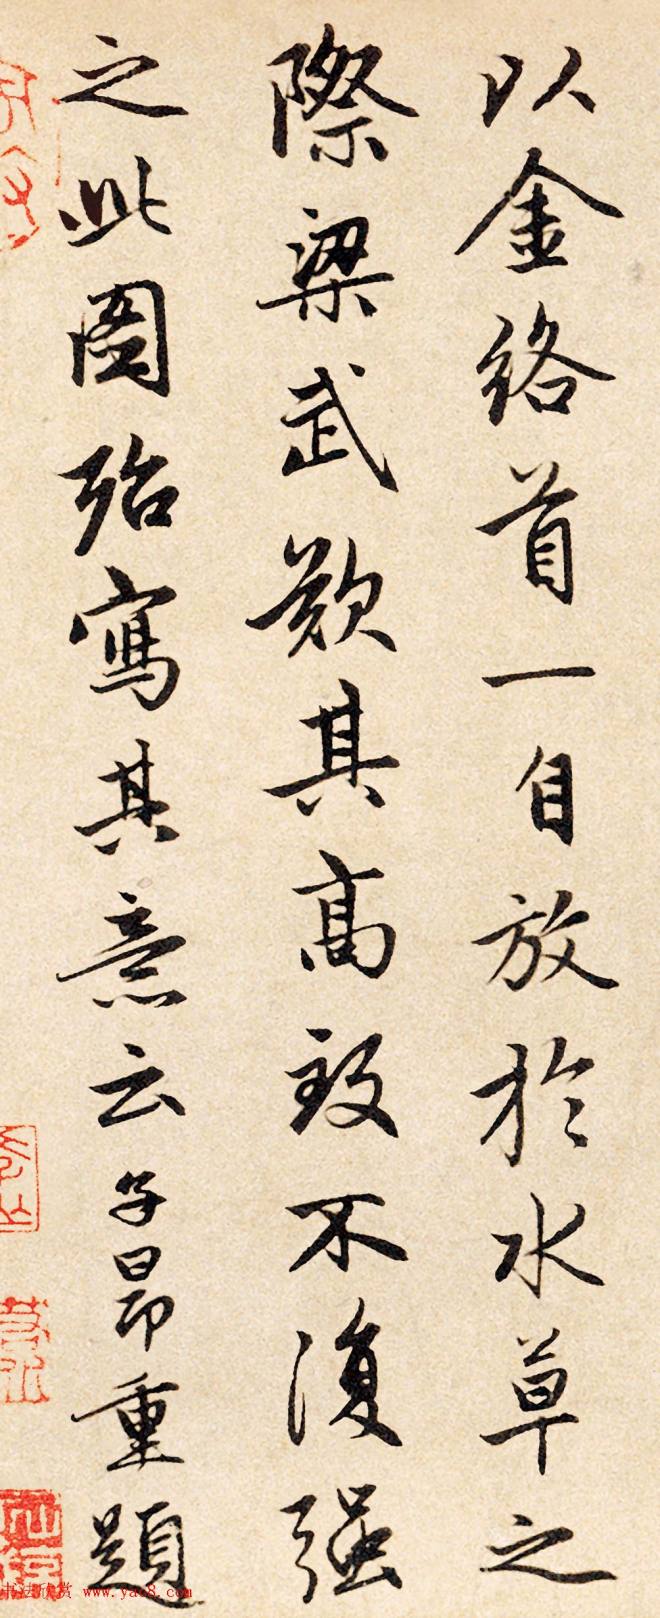 以金络首一自放於水草之
際梁武欽其高致不復强
之此图殆寫其意云子昂重題
书法欣赏 www.yac8.com